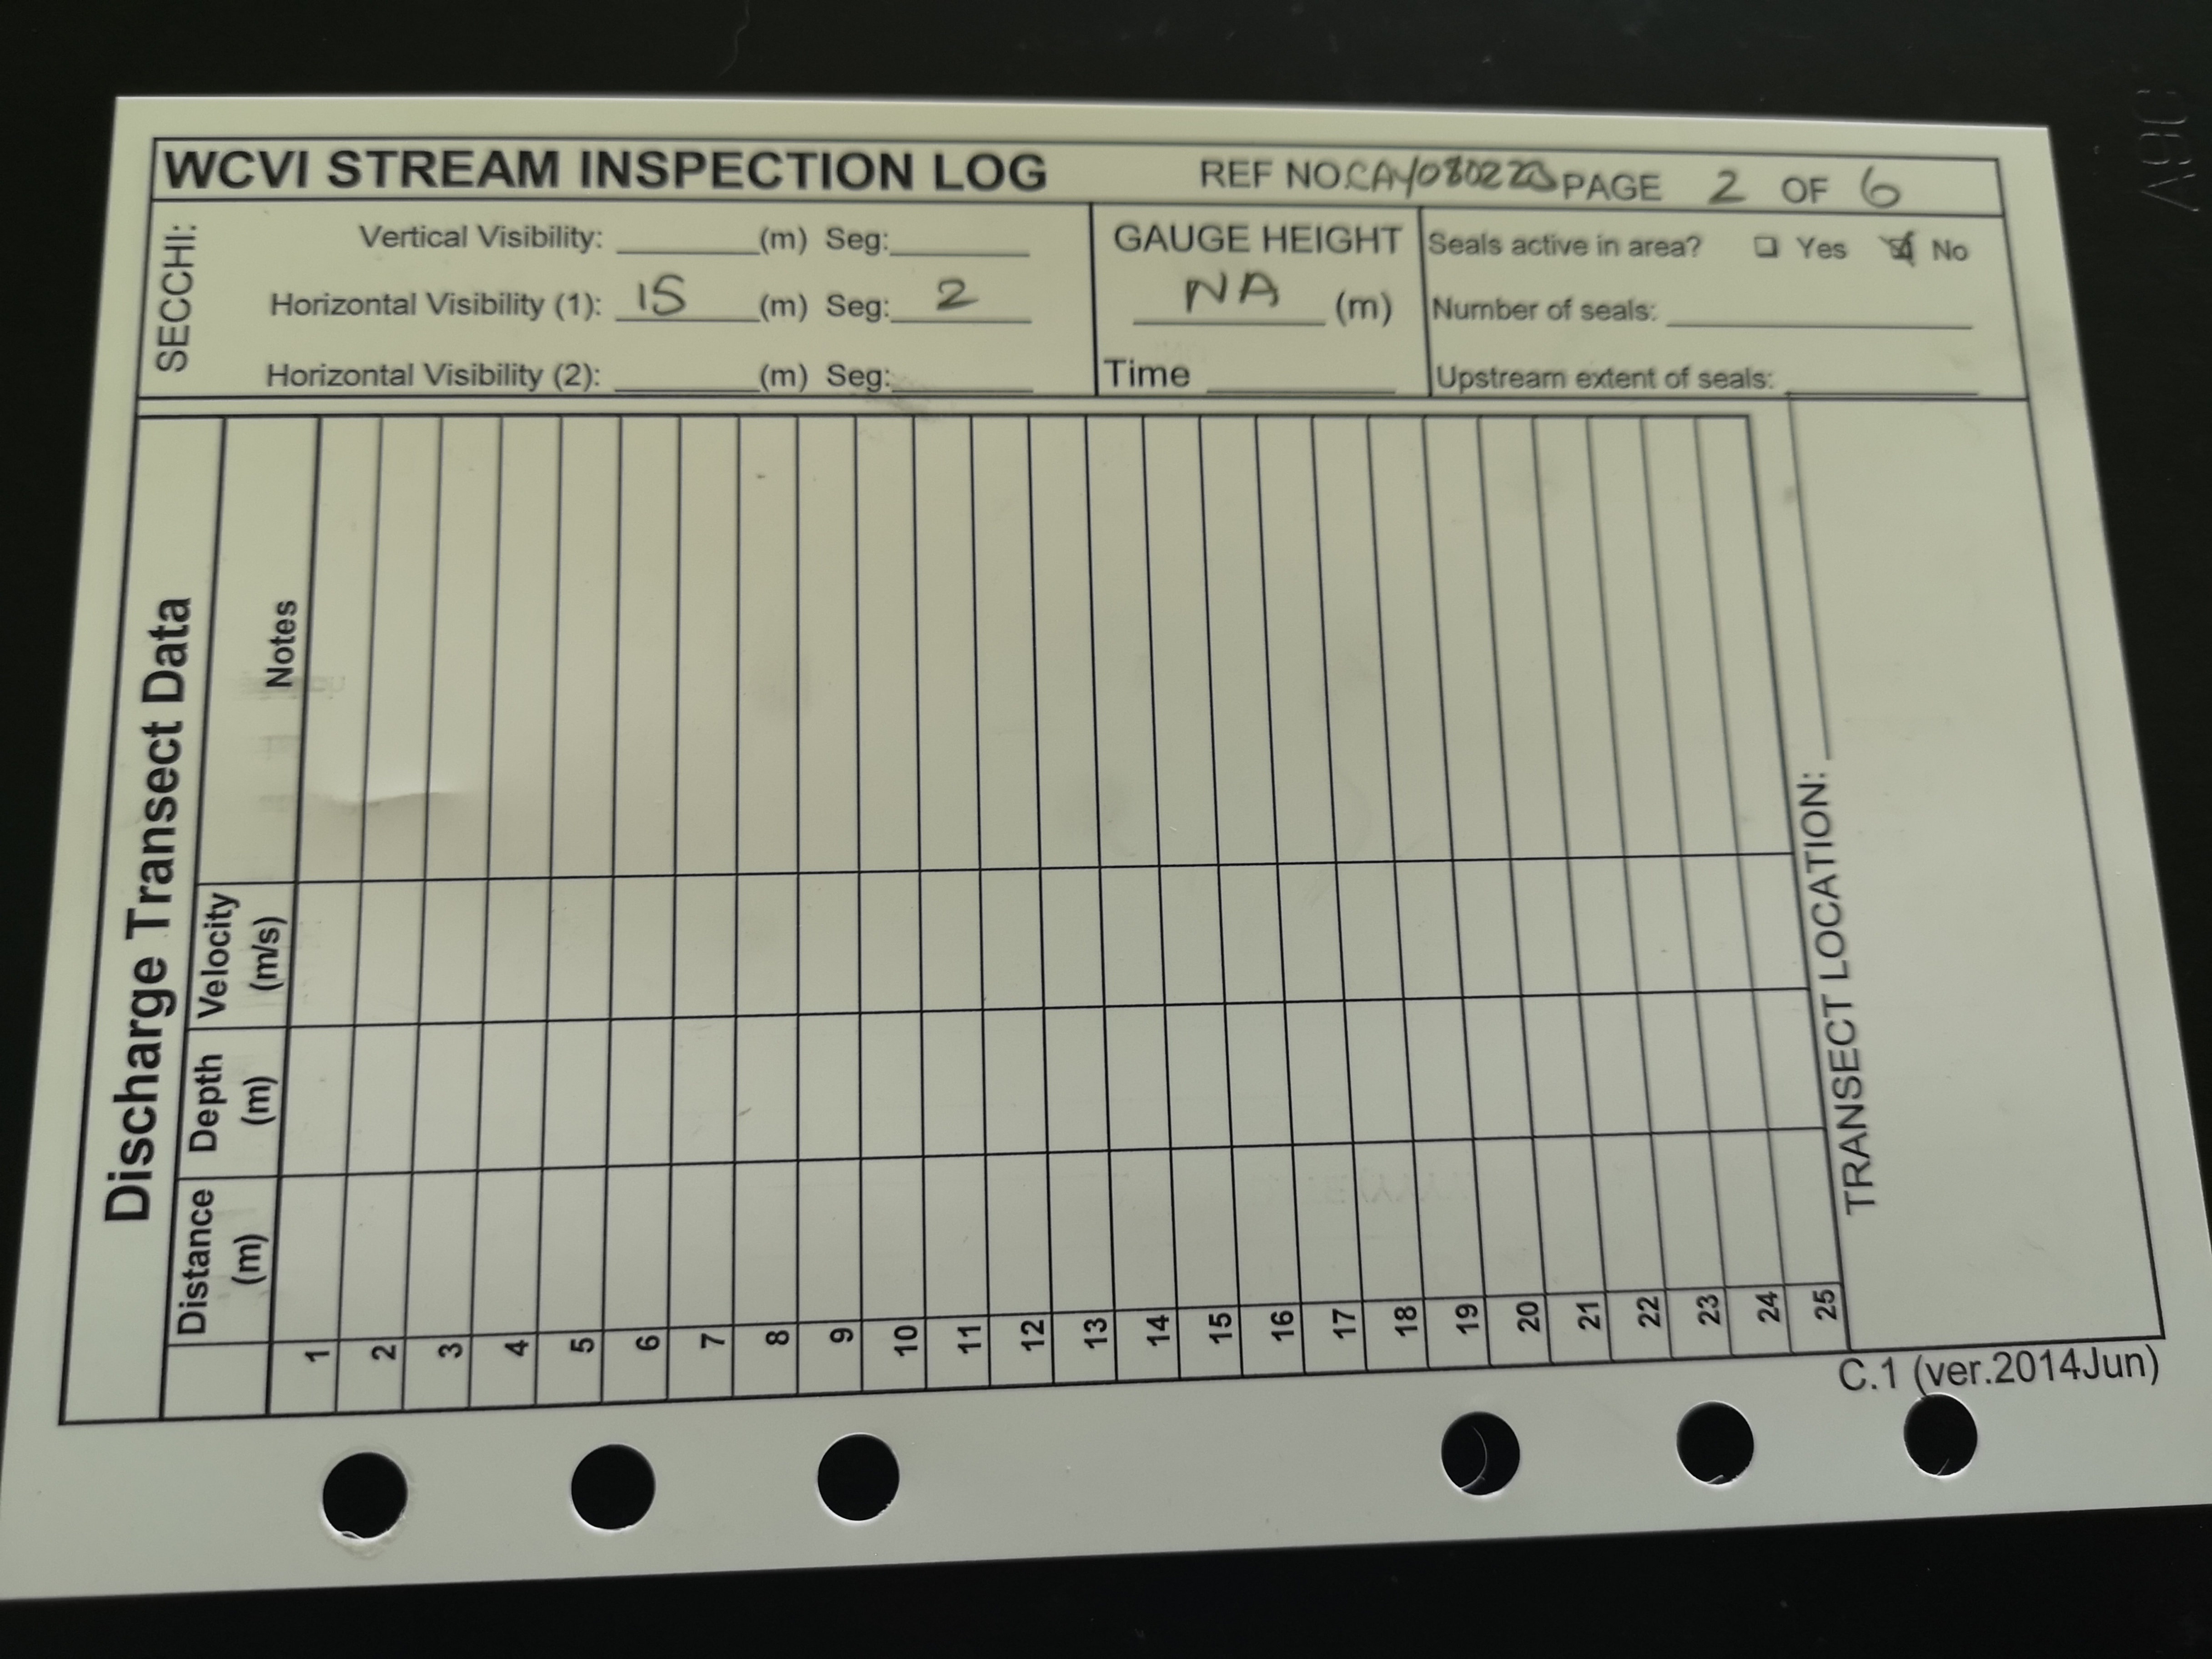 WCVI STREAM INSPECTION LOG REF NO. PAGE 2 OF 6
SECCHI:
Vertical Visibility: ______ (m) Seg: ______
Horizontal Visibility (1): 15 (m) Seg: 2
Horizontal Visibility (2): ______ (m) Seg: ______
GAUGE HEIGHT
NA (m)
Time ______
Seals active in area? ☐ Yes ☒ No
Number of seals: ______
Upstream extent of seals: ______
Discharge Transect Data
Distance (m) Depth (m) Velocity (m/s) Notes
1
2
3
4
5
6
7
8
9
10
11
12
13
14
15
16
17
18
19
20
21
22
23
24
25
TRANSECT LOCATION: ______
C.1 (ver.2014Jun)